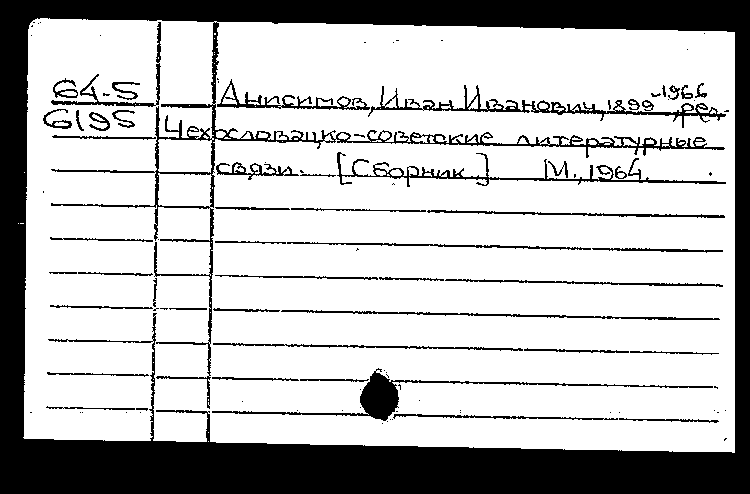 64-5 Анисимов, Иван Иванович, 1899-1966, ред.
6195 Чехословацко-советские литературные
связи. [Сборник.] М., 1964.